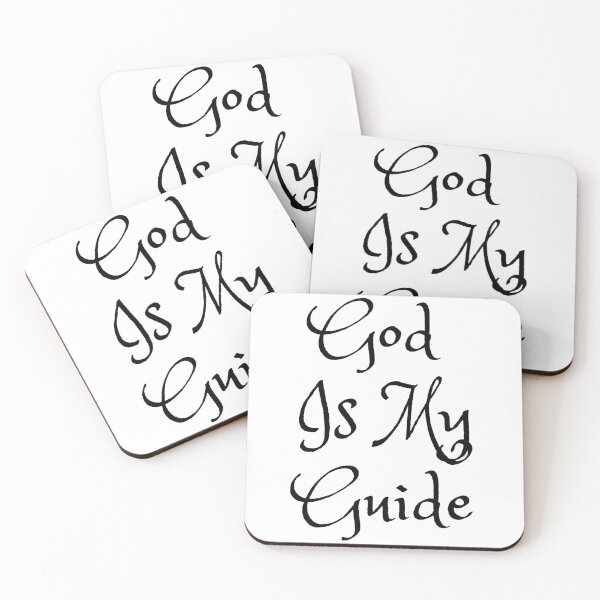 God
Is My
God
Is My
God
Is My
Guide
God
Is My
Guide